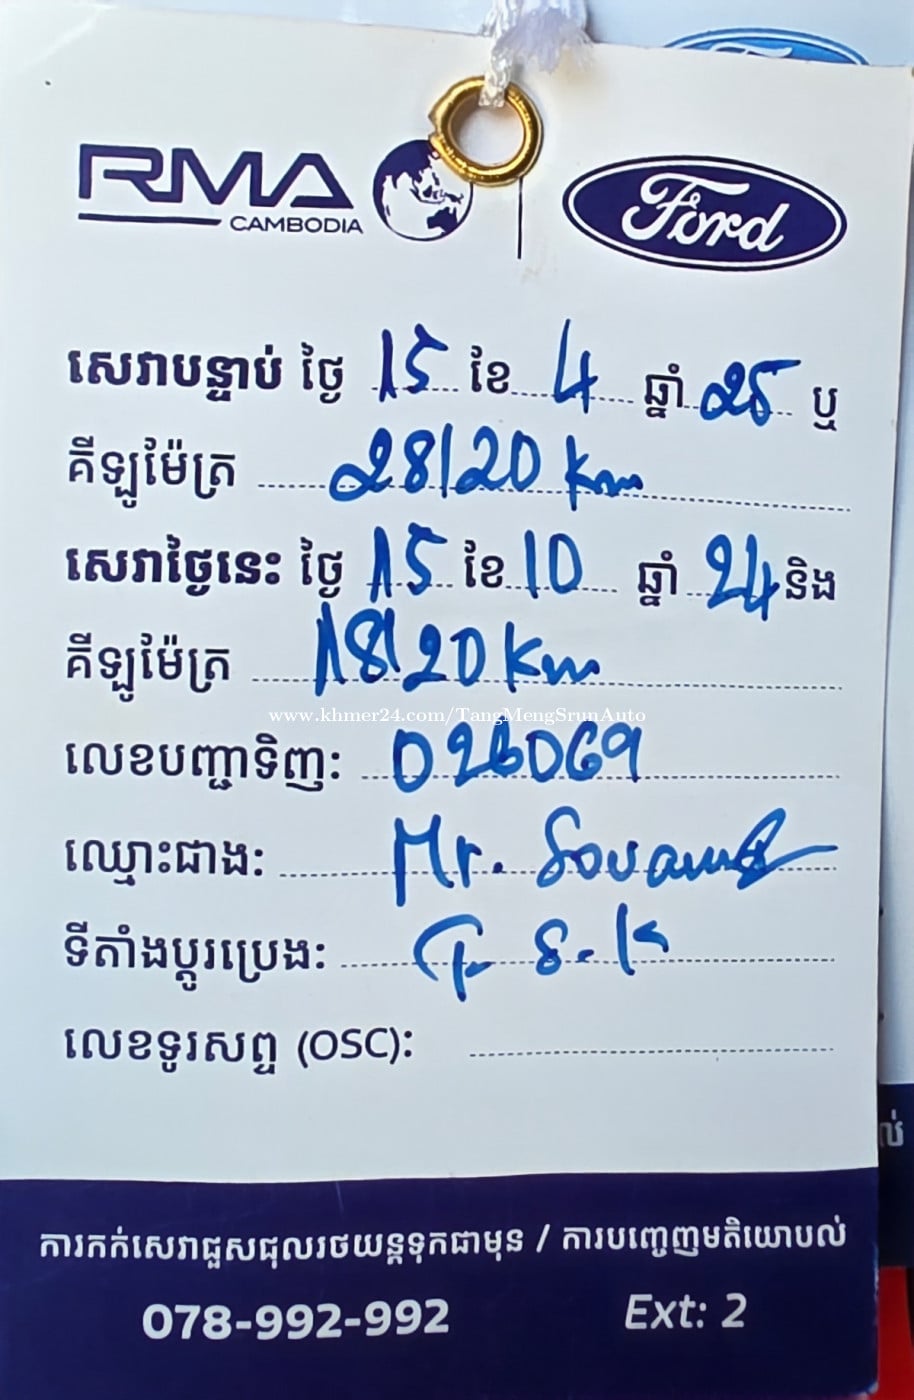 RMA
CAMBODIA
Ford
សេវាបន្ទាប់ ថ្ងៃ 15 ខែ 4 ឆ្នាំ 25 ឬ
គីឡូម៉ែត្រ 28120 Km
សេវាថ្ងៃនេះ ថ្ងៃ 15 ខែ 10 ឆ្នាំ 24 និង
គីឡូម៉ែត្រ 18120 Km
www.khmer24.com/TangMengSrunAuto
លេខបញ្ជាទិញ: 026069
ឈ្មោះជាង: Mr.
ទីតាំងប្តូរប្រេង:
លេខទូរសព្ទ (OSC):
ការកក់សេវាជួសជុលរថយន្តទុកជាមុន / ការបញ្ចេញមតិយោបល់
078-992-992 Ext: 2